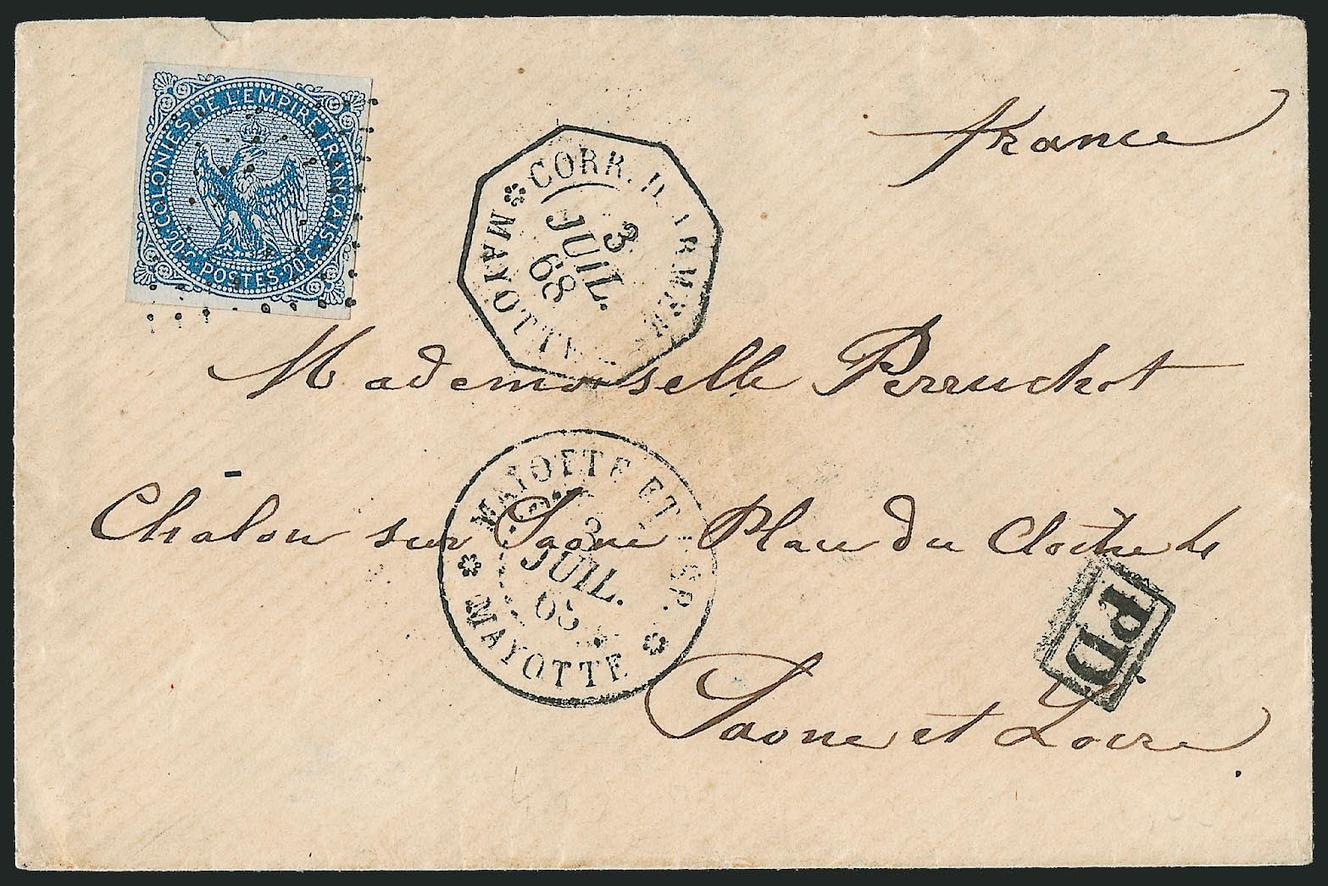 COLONIES DE L'EMPIRE FRANÇAIS
·20C·POSTES·20C·
france
CORR. D. ARMÉES
3
JUIL.
68
MAYOTTE
Mademoiselle Perruchot
Chalon sur Saone Place du Cloitre
MAYOTTE ET
3
JUIL.
68
MAYOTTE
PD
Saone et Loire